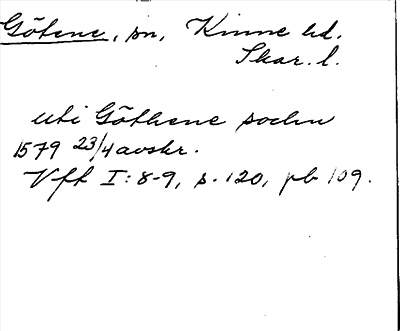 Götene, sn, Kinne hd.
Skar. l.
uti Göthene sochn
1579 23/4 avskr.
Vft I: 8-9, s. 120, pb 109.